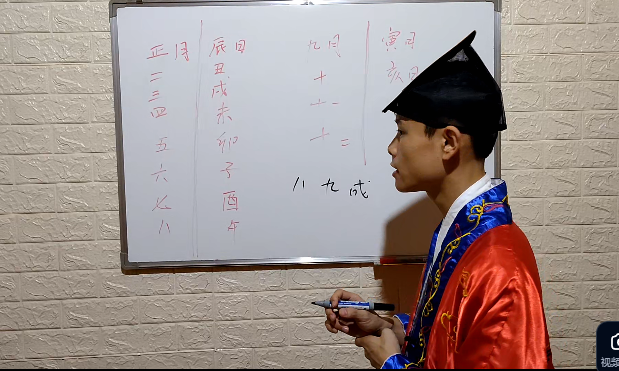 正月 辰日
二 丑
三 戌
四 未
五 卯
六 子
七 酉
八 午
九月 寅日
十 亥日
十一
十二
八九成
视频